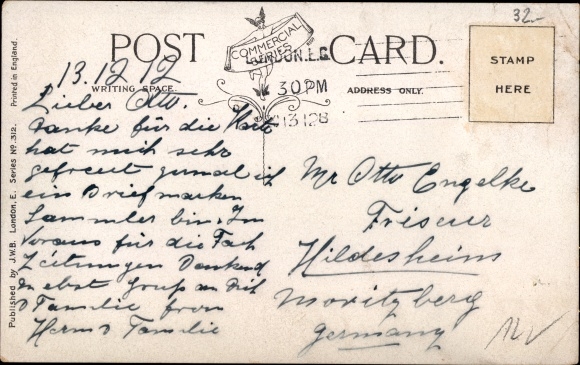 32.-
POST CARD.
COMMERCIAL
SERIES
LONDON. E.C
30 PM
13 12
WRITING SPACE
ADDRESS ONLY.
STAMP
HERE
Printed in England.
Published by J.W.B. London, E. Series No. 312.
13.12.12
Lieber Otto.
Danke für die Karte
hat mich sehr
gefreut zumal ich
ein Briefmarken
Sammler bin. Im
Voraus für die Fach
Zeitungen Dankend
nebst Gruß an Dich
& Familie from
Herm & Familie
Mr Otto Engelke
Friseur
Hildesheim
Moritzberg
Germany